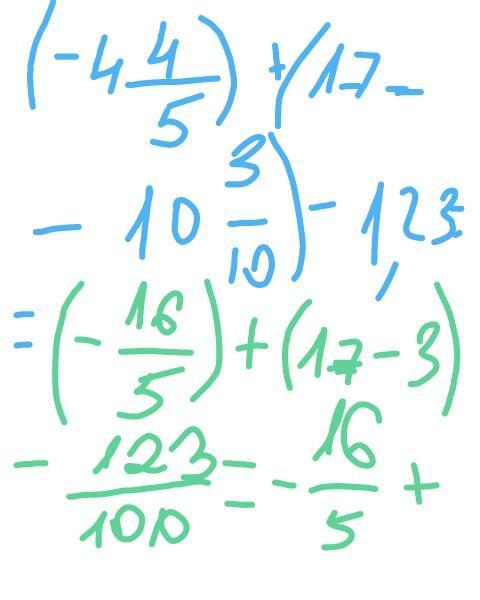 (-4 4/5) + (17 -
- 10 3/10) - 1,23
= (- 16/5) + (17 - 3)
- 123/100 = - 16/5 +